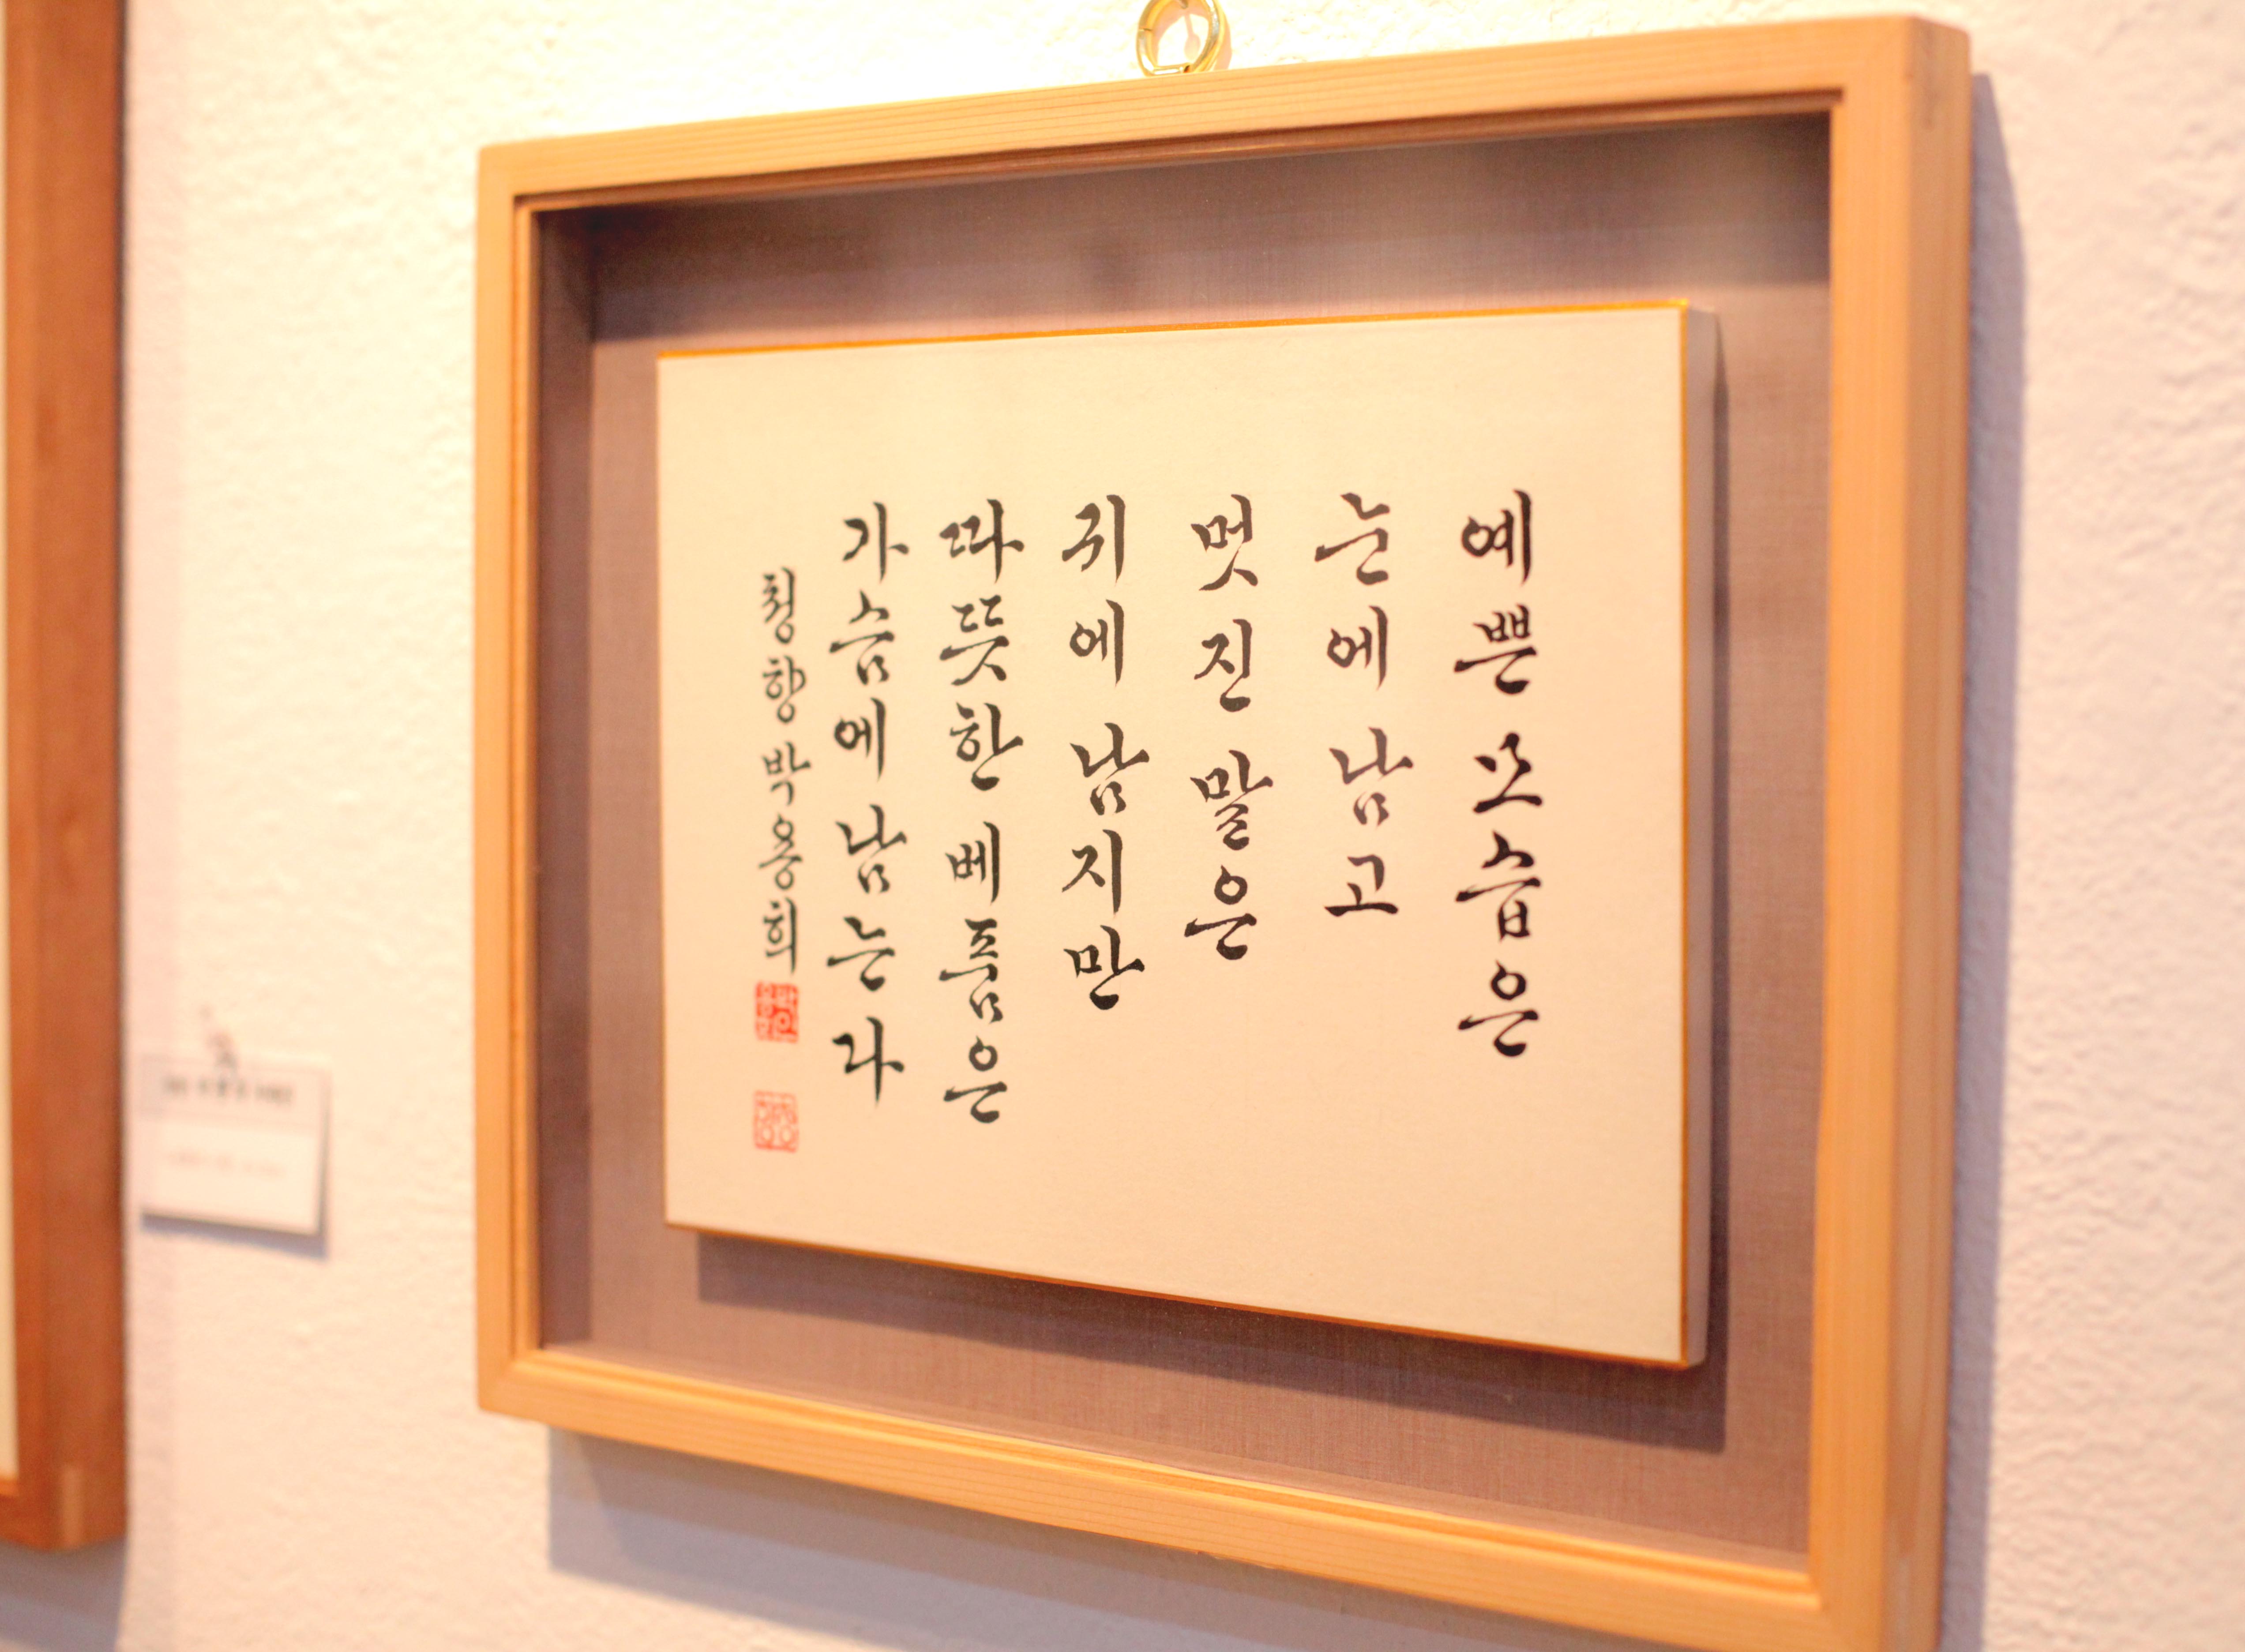 예쁜 모습은
눈에 남고
멋진 말은
귀에 남지만
따뜻한 베풂은
가슴에 남는다
청향 박용희